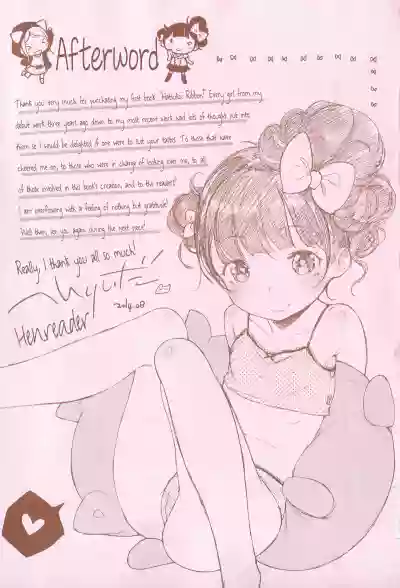 Afterword
Thank you very much for purchasing my first book "Hatsukoi Ribbon." Every girl from my
debut work three years ago down to my most recent work had lots of thought put into
them so I would be delighted if one were to suit your tastes. To those that have
cheered me on, to those who were in charge of looking over me, to all
of those involved in this book's creation, and to the readers!
I am overflowing with a feeling of nothing but gratitude!
Well then, see you again during the next piece!
Really, I thank you all so much!
2014.08
Henreader